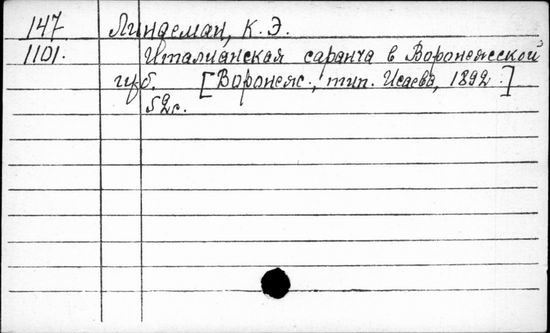 147 Линдеман, К. Э.
1101. Италианская саранча в Воронежской
губ. [Воронеж, тип. Исаева, 1892.]
52с.